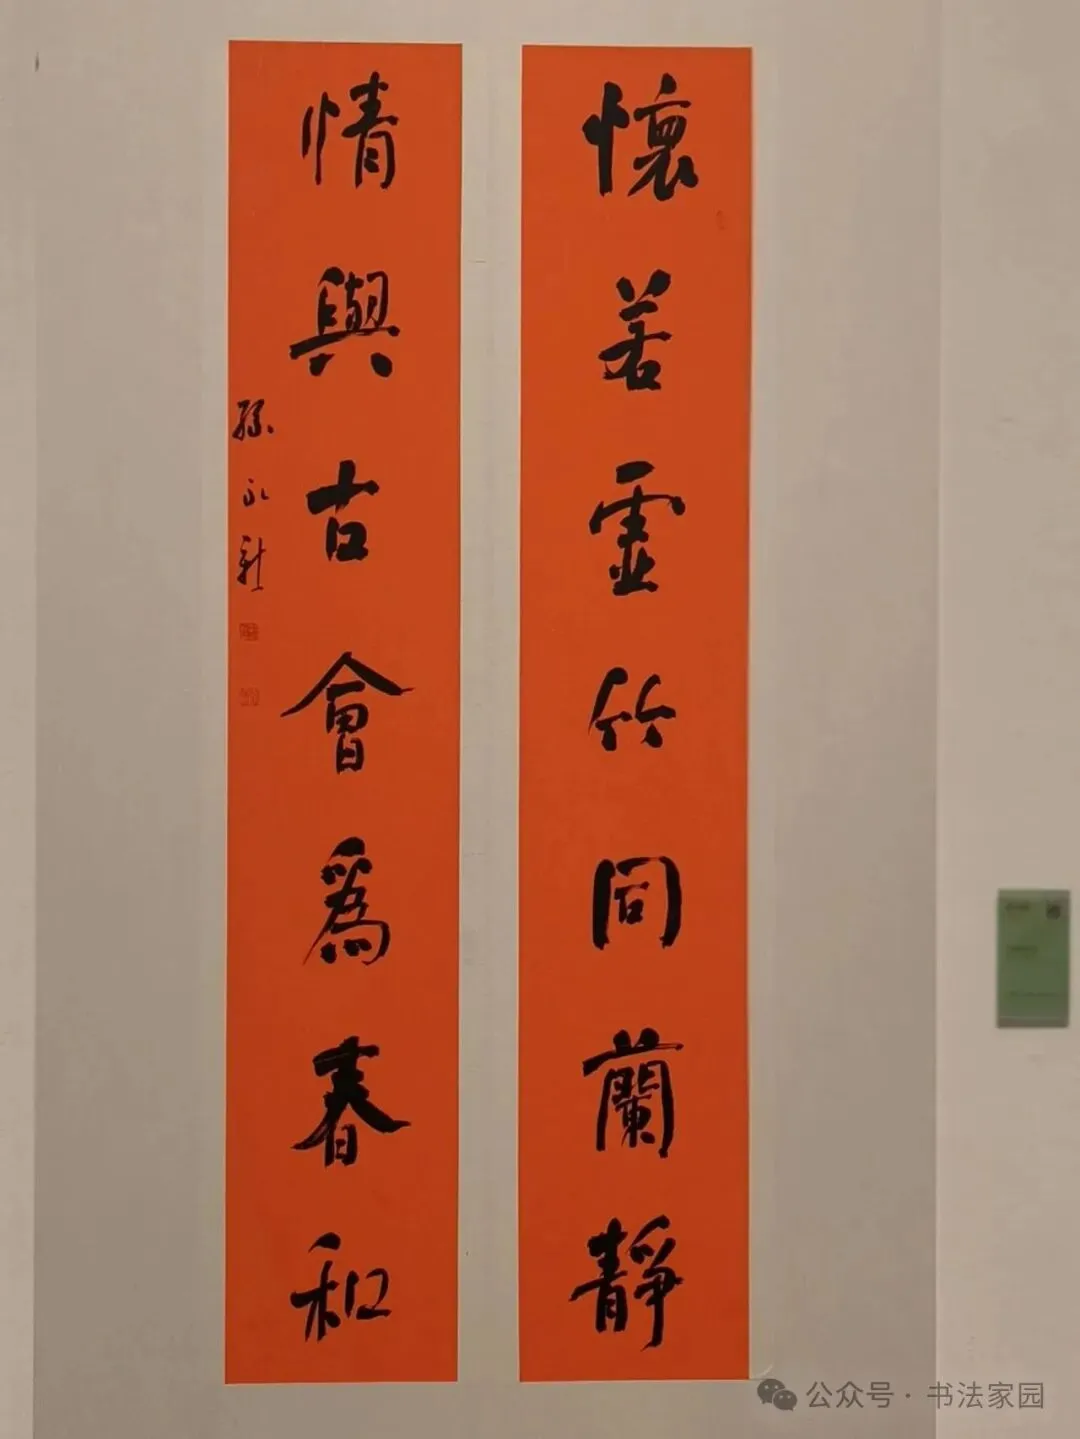 懷若虛竹同蘭静
情與古會爲春和
孫永新
公众号·书法家园